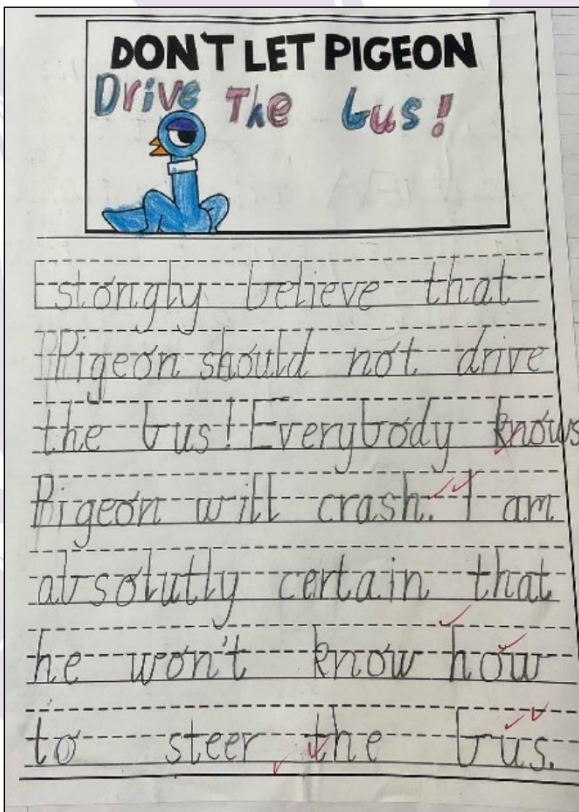 DON'T LET PIGEON
Drive The bus!
I stongly believe that
Pigeon should not drive
the bus! Everybody knows
Pigeon will crash. I am
absolutly certain that
he won't know how
to steer the bus.